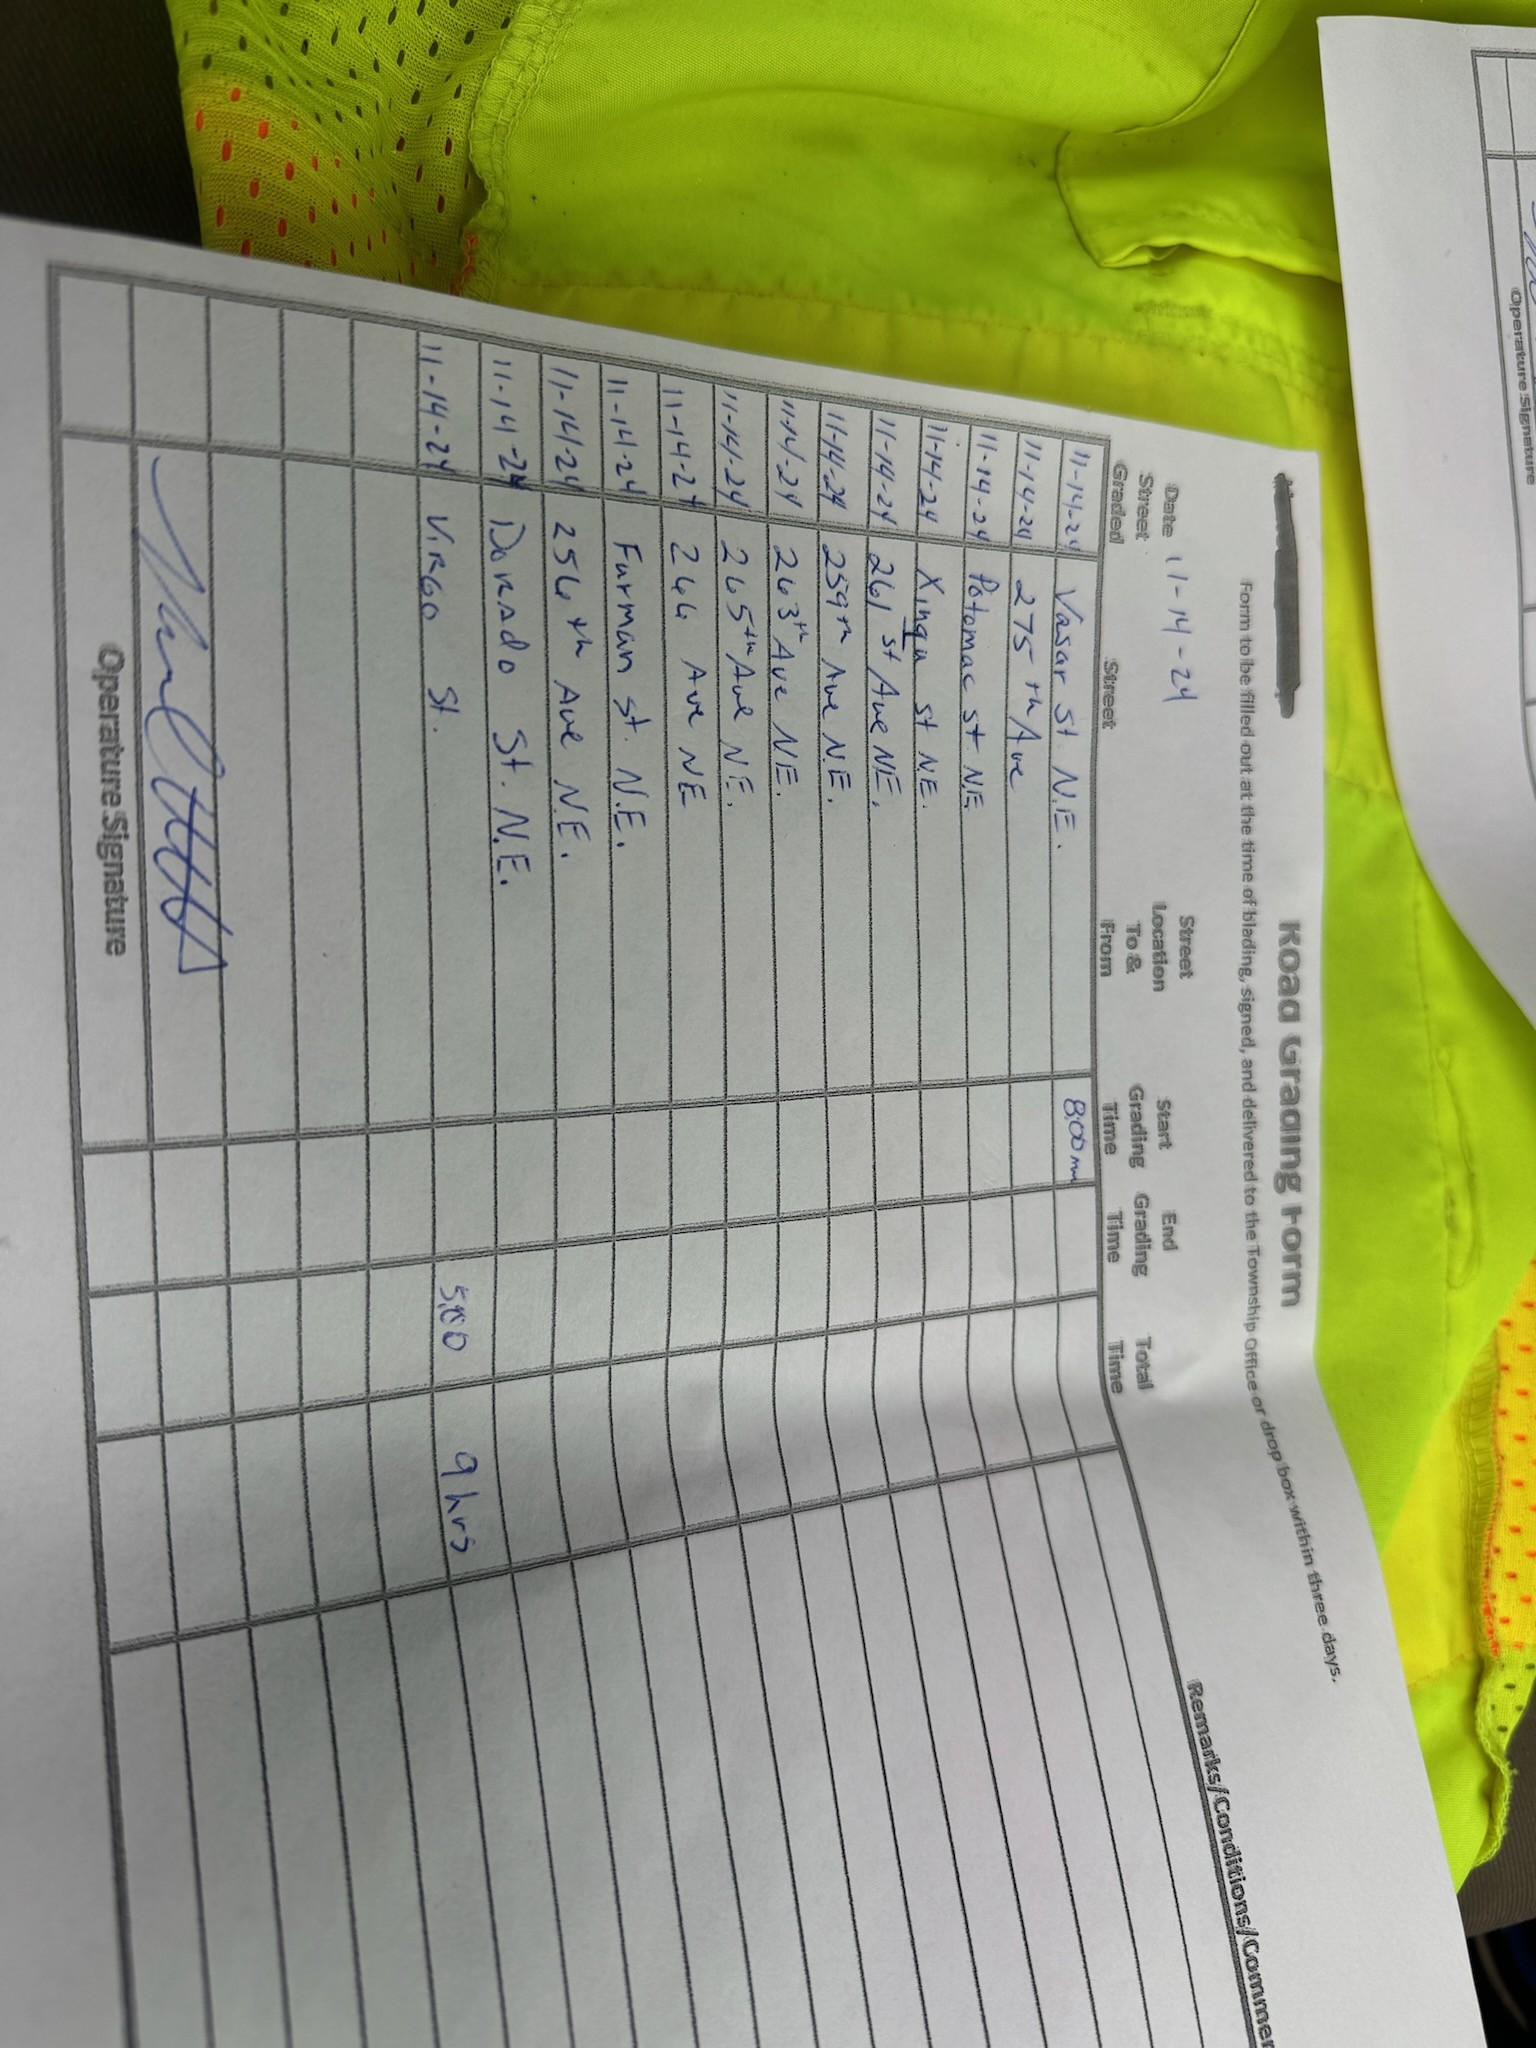 Road Grading Form
Form to be filled out at the time of blading, signed, and delivered to the Township Office or drop box within three days.
Date 11-14-24
Street Graded Street Street Location To & From Start Grading Time End Grading Time Total Time Remarks/Conditions/Commen
11-14-24 Vasar St. N.E. 8:00
11-14-24 275th Ave
11-14-24 Potomac St N.E.
11-14-24 Xingu St N.E.
11-14-24 261st Ave NE.
11-14-24 259th Ave N.E.
11-14-24 263rd Ave N.E.
11-14-24 265th Ave N.E.
11-14-24 266 Ave NE
11-14-24 Furman St. N.E.
11-14-24 256th Ave N.E.
11-14-24 Dorado St. N.E.
11-14-24 Virgo St. 5:00 9 hrs
Operature Signature
Operature Signature